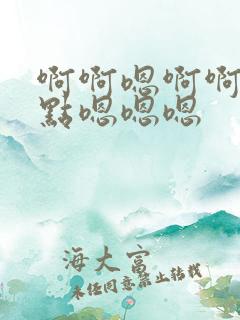 啊啊嗯啊啊
點嗯嗯嗯
海大富
未任同意禁止转载